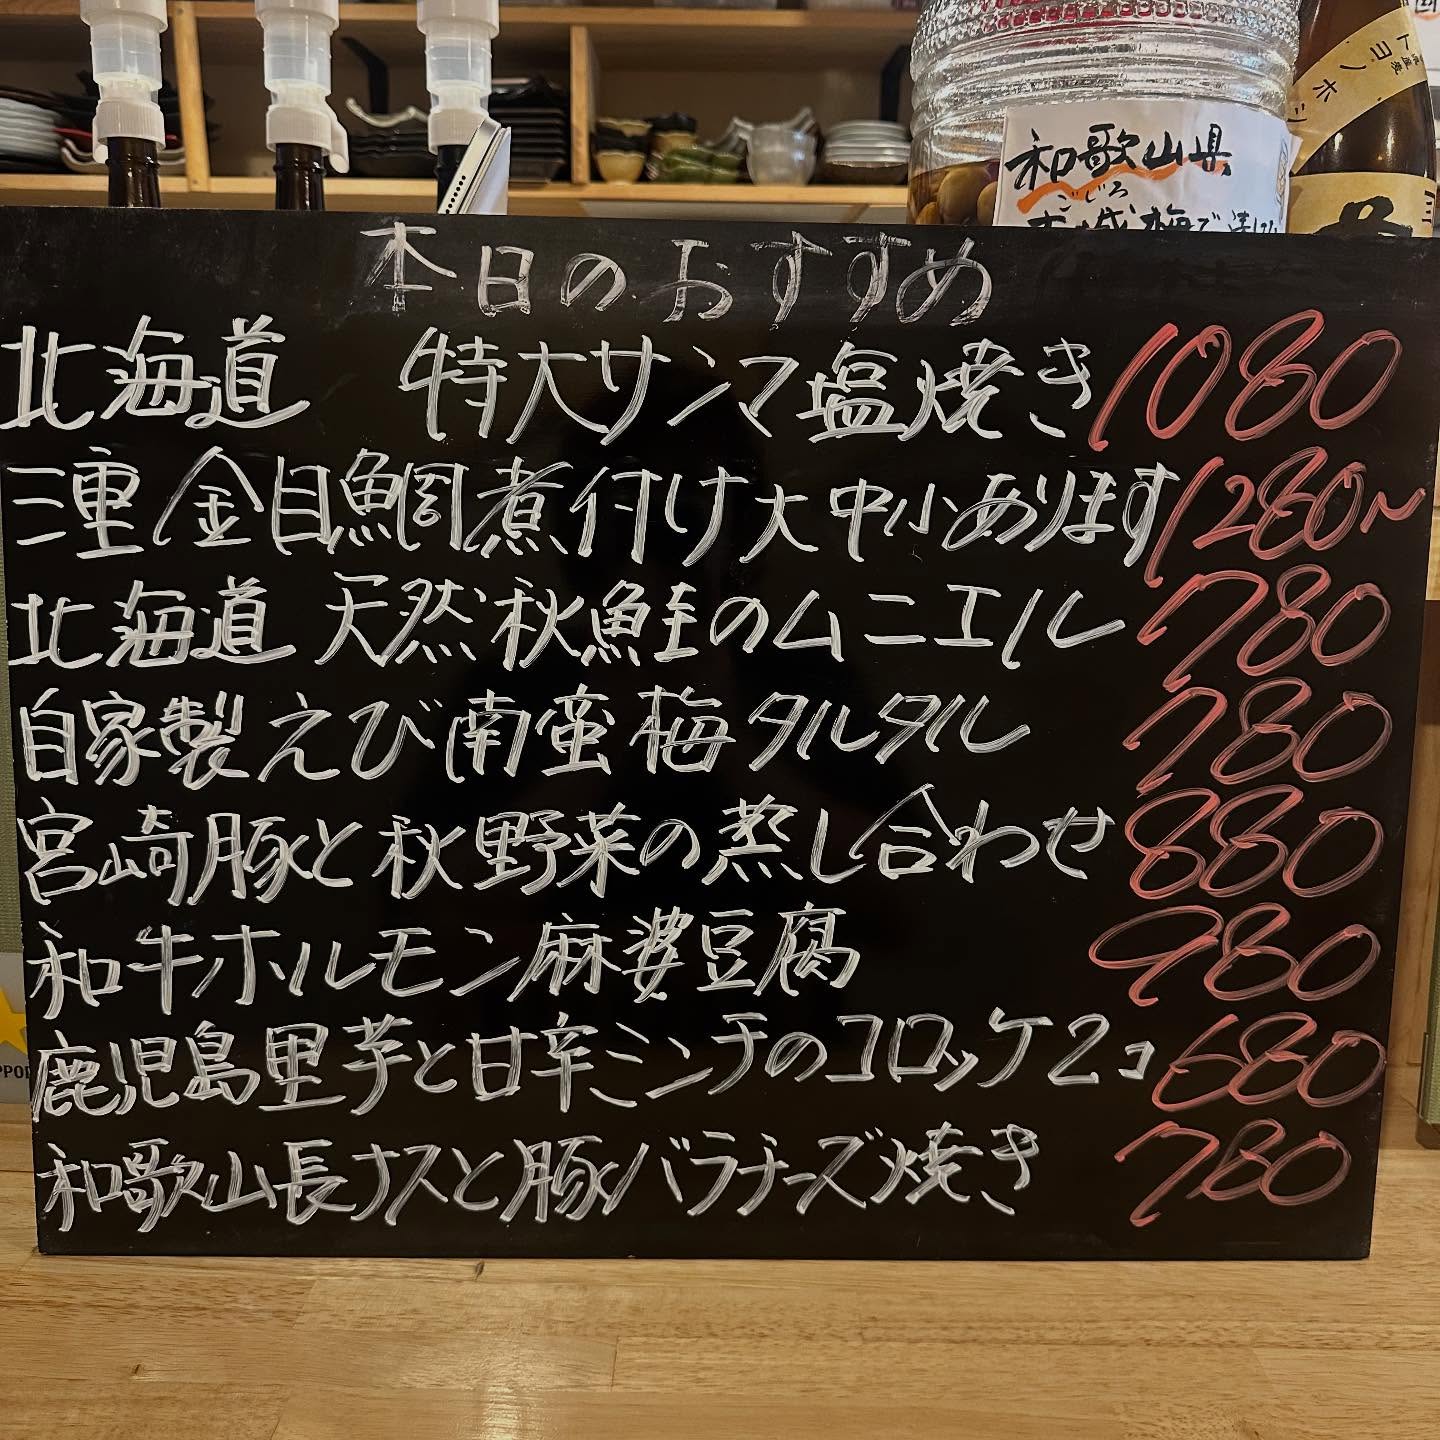 和歌山県
ごじろ
トヨノホシ
本日のおすすめ
北海道 特大サンマ塩焼き 1080
三重 金目鯛煮付け大中小あります 1280〜
北海道 天然秋鮭のムニエル 780
自家製えび南蛮 梅タルタル 780
宮崎豚と秋野菜の蒸し合わせ 880
和牛ホルモン麻婆豆腐 980
鹿児島里芋と甘辛ミンチのコロッケ2コ 680
和歌山長ナスと豚バラチーズ焼き 780